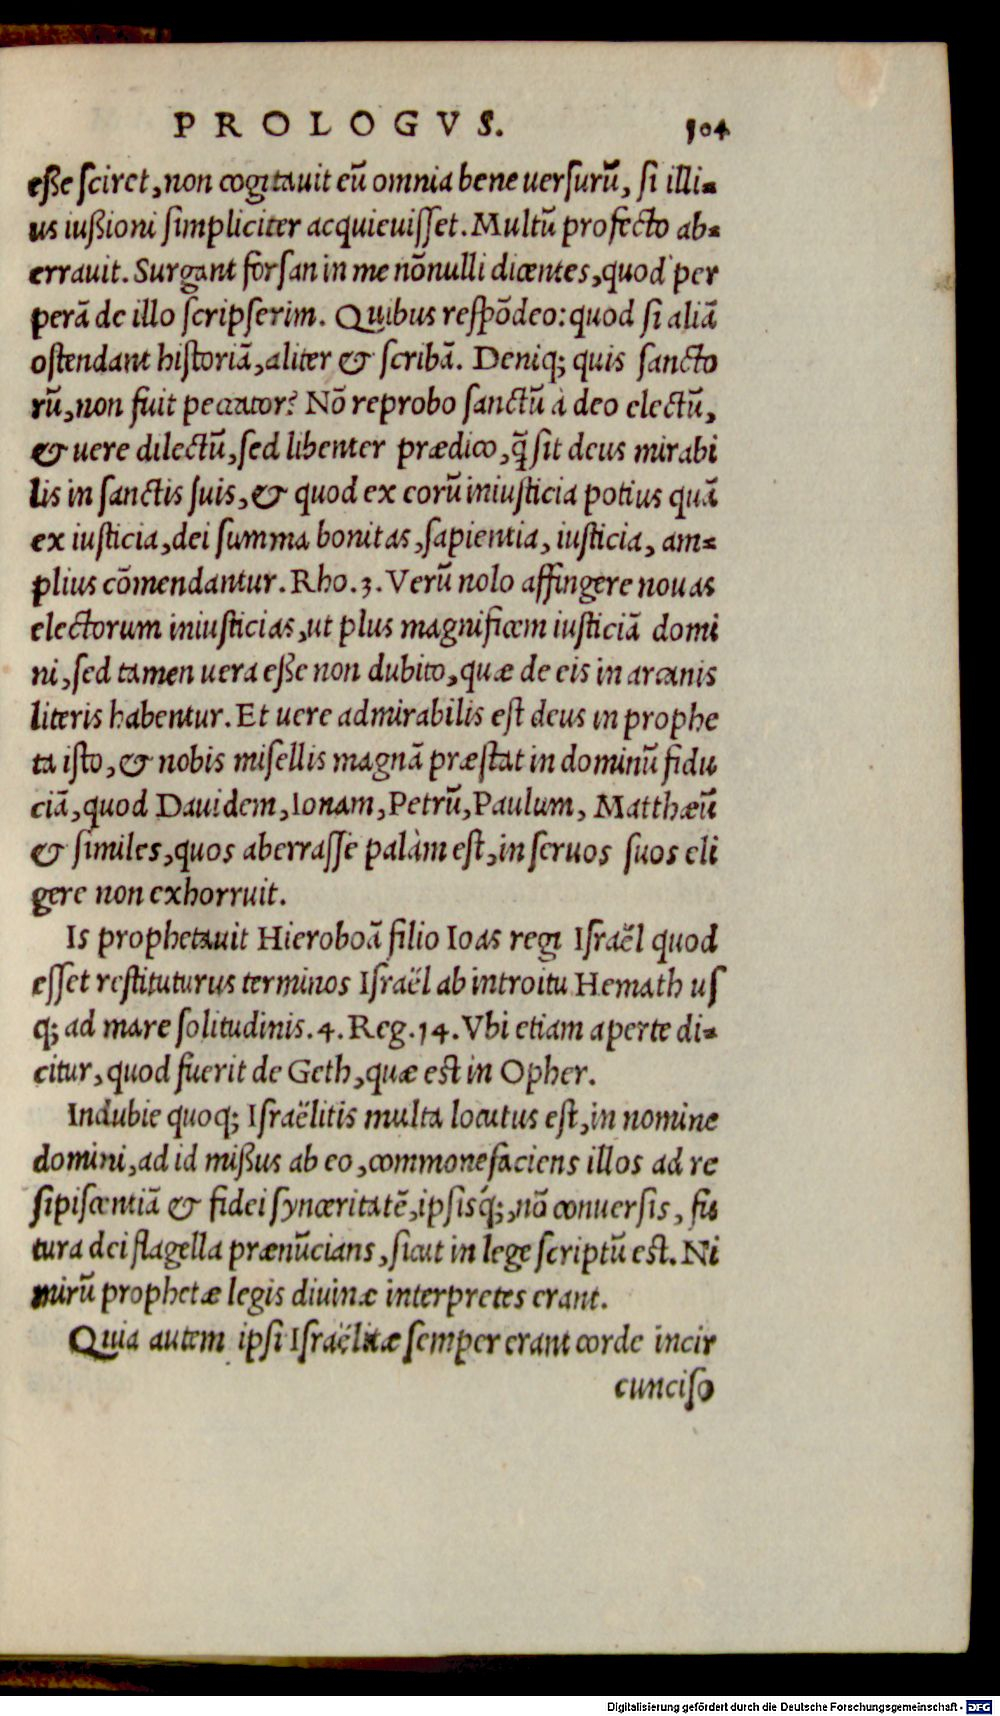 PROLOGVS. 504
eße ſciret, non cogitauit eũ omnia bene uerſurũ, ſi illi-
us iußioni ſimpliciter acquieuiſſet. Multũ profecto ab-
errauit. Surgant forſan in me nõnulli dicentes, quod per
perã de illo ſcripſerim. Quibus reſpõdeo: quod ſi aliã
oſtendant hiſtoriã, aliter & ſcribã. Deniq; quis ſancto
rũ, non fuit peccator? Nõ reprobo ſanctũ à deo electũ,
& uere dilectũ, ſed libenter prædico, q̃ ſit deus mirabi
lis in ſanctis ſuis, & quod ex eorũ iniuſticia potius quã
ex iuſticia, dei ſumma bonitas, ſapientia, iuſticia, am-
plius cõmendantur. Rho. 3. Verũ nolo affingere nouas
electorum iniuſticias, ut plus magnificem iuſticiã domi
ni, ſed tamen uera eße non dubito, quæ de eis in arcanis
literis habentur. Et uere admirabilis eſt deus in prophe
ta iſto, & nobis miſellis magnã præſtat in dominũ fidu
ciã, quod Dauidem, Ionam, Petrũ, Paulum, Matthæũ
& ſimiles, quos aberraſſe palàm eſt, in ſeruos ſuos eli
gere non exhorruit.
Is prophetauit Hieroboã filio Ioas regi Iſraël quod
eſſet reſtituturus terminos Iſraël ab introitu Hemath uſ
q; ad mare ſolitudinis. 4. Reg. 14. Vbi etiam aperte di-
citur, quod fuerit de Geth, quæ eſt in Opher.
Indubie quoq; Iſraëlitis multa locutus eſt, in nomine
domini, ad id mißus ab eo, commonefaciens illos ad re
ſipiſcentiã & fidei ſynceritatẽ, ipſisq́;, nõ conuerſis, fu
tura dei flagella prænũcians, ſicut in lege ſcriptũ eſt. Ni
mirũ prophetæ legis diuinæ interpretes erant.
Quia autem ipſi Iſraëlitæ ſemper erant corde incir
cunciſo
Digitalisierung gefördert durch die Deutsche Forschungsgemeinschaft - DFG